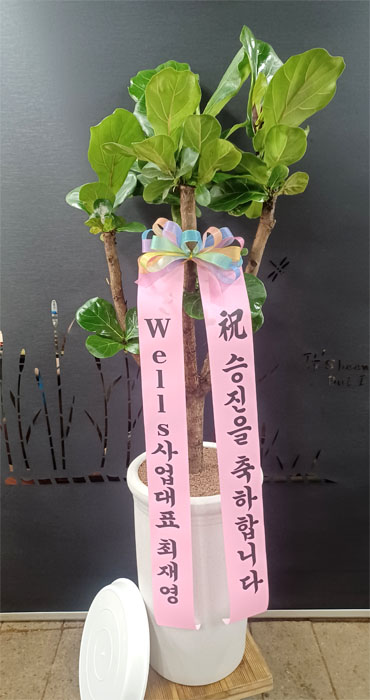 祝 승진을 축하합니다
Wells사업대표 최재영